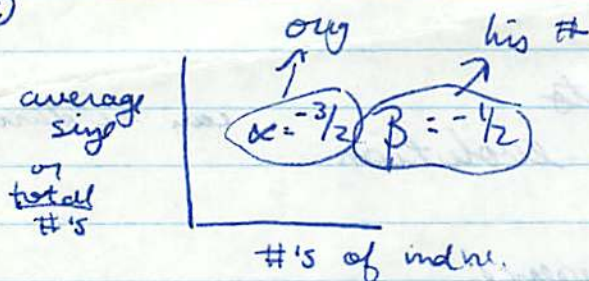 orig
his #
average
size
or
total
#'s
α = -3/2
β = -1/2
#'s of indiv.